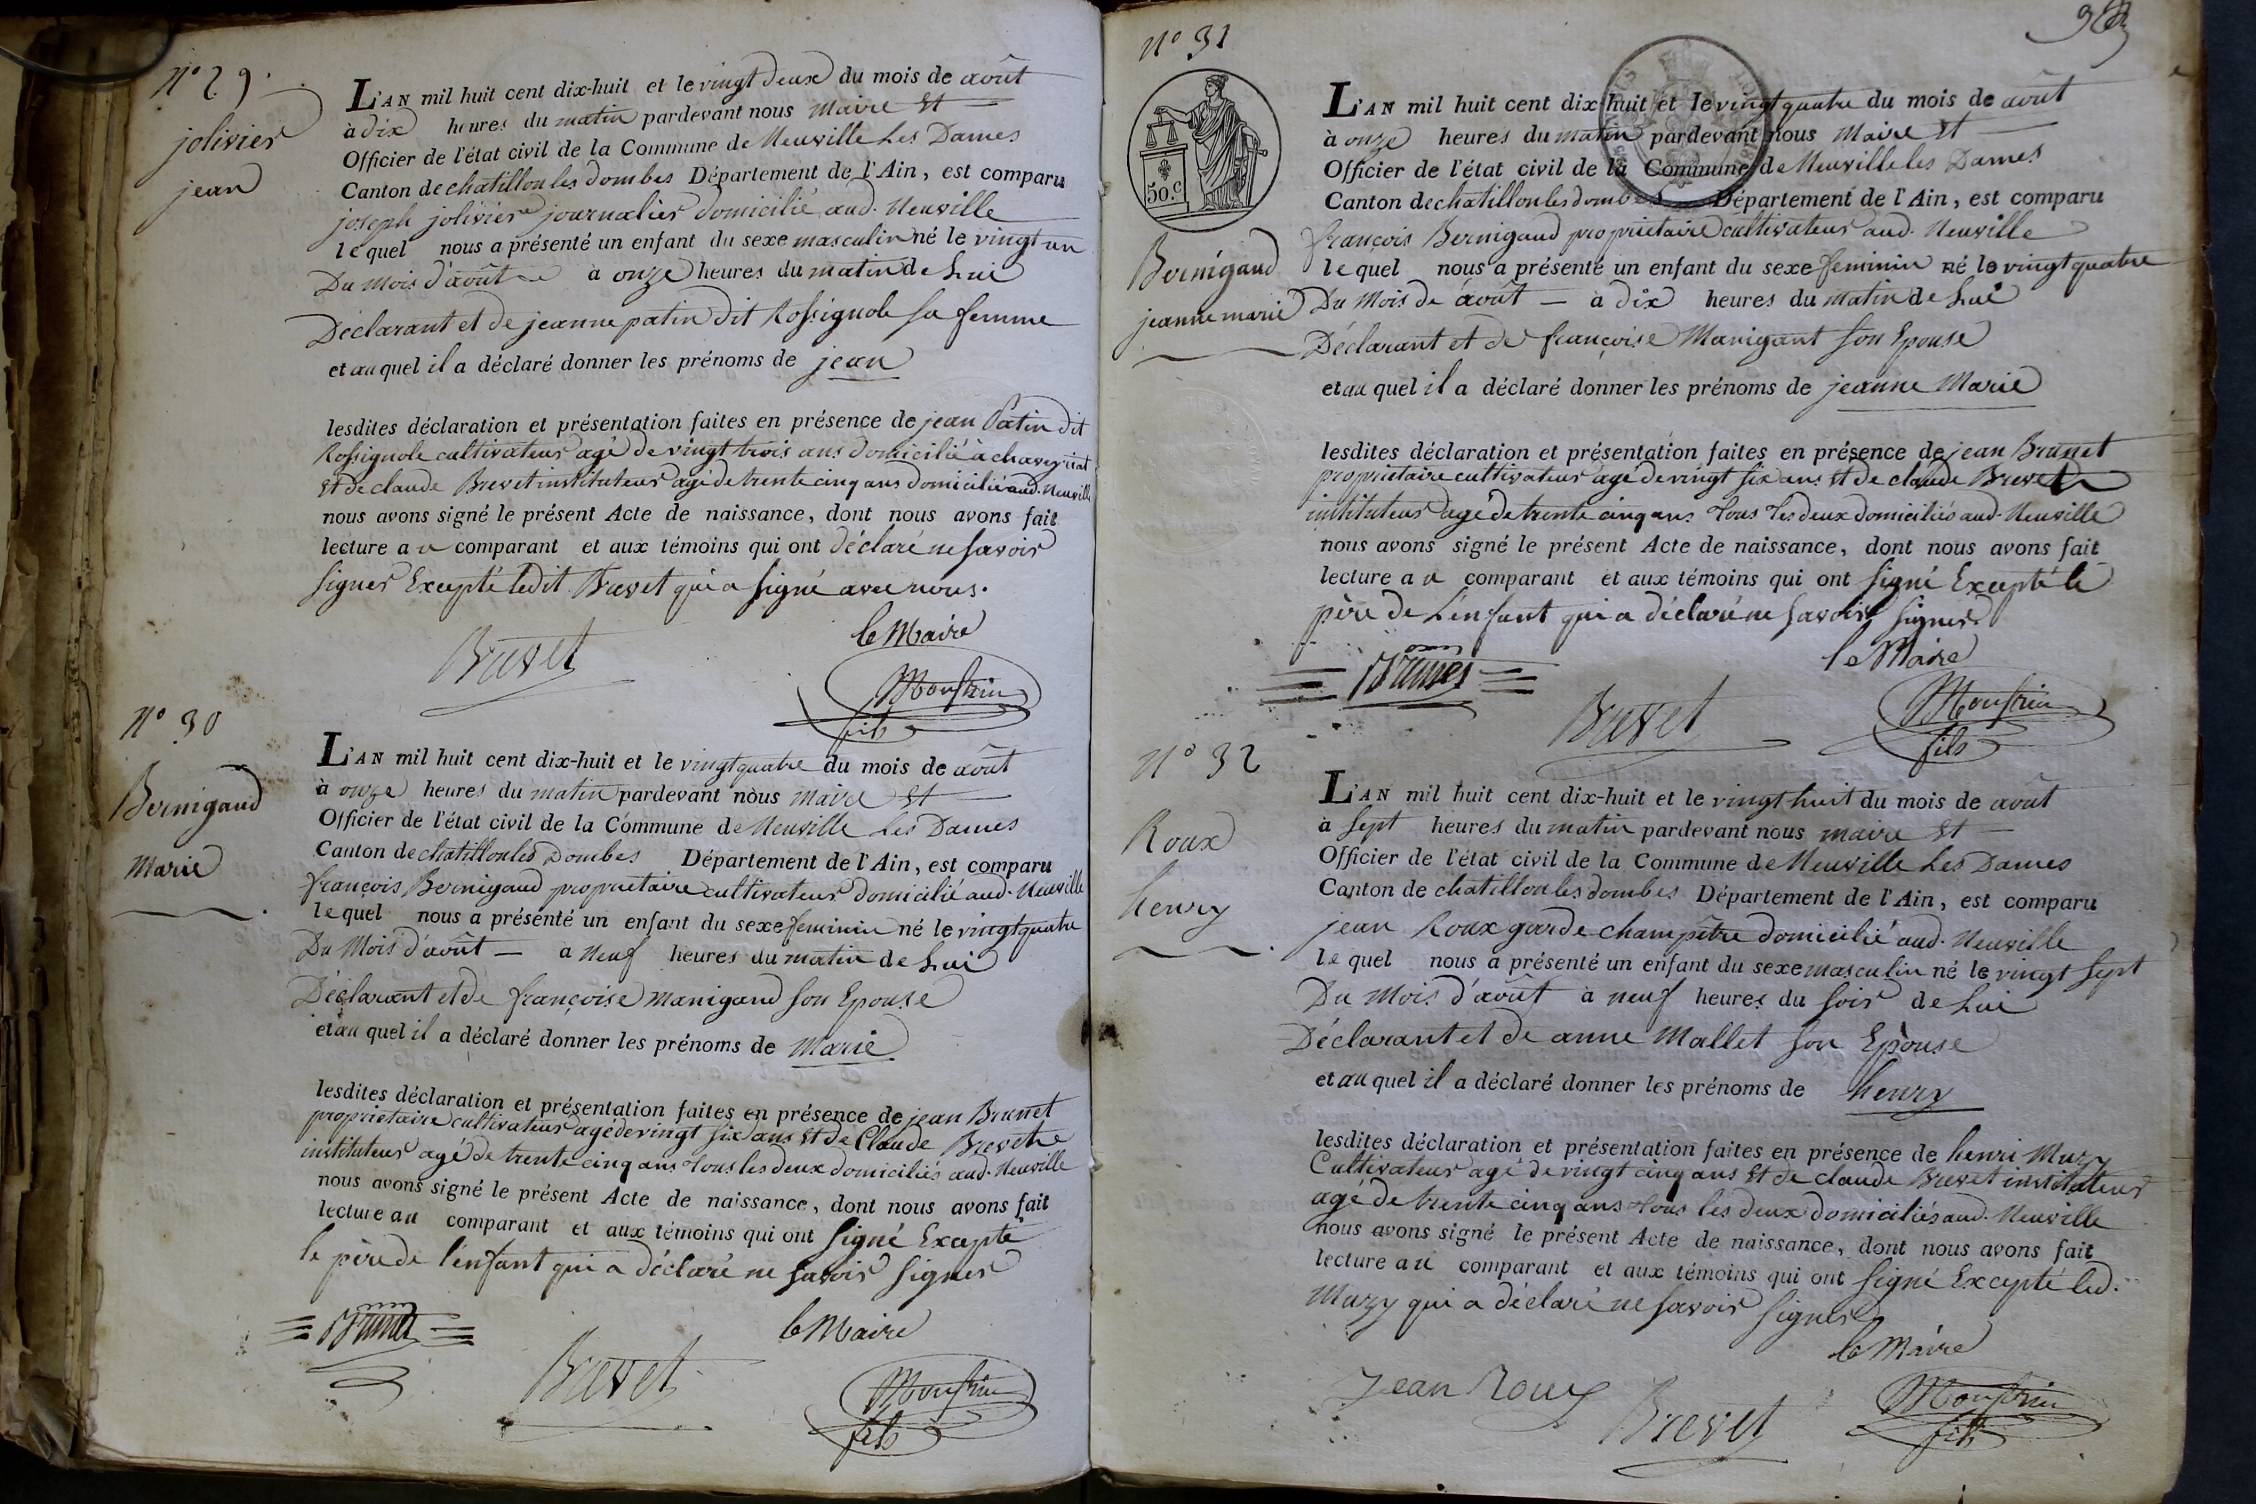 N° 29.
jolivier
jean
L'AN mil huit cent dix-huit et le vingt deux du mois de août
à dix heures du matin pardevant nous Maire Et
Officier de l'état civil de la Commune de Neuville Les Dames
Canton de chatillon les dombes Département de l'Ain, est comparu
joseph jolivier journalier domicilié aud. Neuville
lequel nous a présenté un enfant du sexe masculin né le vingt un
Du Mois d'août à onze heures du matin de Lui
Déclarant et de jeanne patin dit Rossignole sa femme
et au quel il a déclaré donner les prénoms de jean
lesdites déclaration et présentation faites en présence de jean Patin dit
Rossignole cultivateur agé de vingt trois ans domicilié à chaveyriat
Et de claude Brevet instituteur agé de trente cinq ans domicilié aud. Neuville
nous avons signé le présent Acte de naissance, dont nous avons fait
lecture au comparant et aux témoins qui ont déclaré ne savoir
signer Excepté ledit Brevet qui a signé avec nous.
le Maire
Brevet
fils
N° 30
Bernigaud
Marie
L'AN mil huit cent dix-huit et le vingt quatre du mois de août
à onze heures du matin pardevant nous maire Et
Officier de l'état civil de la Commune de Neuville Les Dames
Canton de chatillon les Dombes Département de l'Ain, est comparu
françois Bernigaud proprietaire cultivateur domicilié aud. Neuville
lequel nous a présenté un enfant du sexe feminin né le vingt quatre
Du Mois d'août — a neuf heures du matin de Lui
Déclarant et de françoise manigand son Epouse
et au quel il a déclaré donner les prénoms de Marie
lesdites déclaration et présentation faites en présence de jean Brunet
proprietaire cultivateur agé de vingt six ans Et de Claude Brevet
instituteur agé de trente cinq ans tous les deux domiciliés aud. Neuville
nous avons signé le présent Acte de naissance, dont nous avons fait
lecture au comparant et aux témoins qui ont signé Excepté
le père de l'enfant qui a déclaré ne savoir signer
le Maire
Brunet
Brevet
fils
N° 31
50.C.
Bernigaud
jeanne marie
L'AN mil huit cent dix-huit et le vingt quatre du mois de août
à onze heures du matin pardevant nous Maire Et
Officier de l'état civil de la Commune de Neuville les Dames
Canton de chatillon les dombes Département de l'Ain, est comparu
françois Bernigaud proprietaire cultivateur aud. Neuville
lequel nous a présenté un enfant du sexe feminin né le vingt quatre
Du Mois de août — à dix heures du matin de Lui
Déclarant et de françoise Manigant son Epouse
et au quel il a déclaré donner les prénoms de jeanne Marie
lesdites déclaration et présentation faites en présence de jean Brunet
proprietaire cultivateur agé de vingt six ans Et de claude Brevet
instituteur agé de trente cinq ans tous les deux domiciliés aud. Neuville
nous avons signé le présent Acte de naissance, dont nous avons fait
lecture au comparant et aux témoins qui ont signé Excepté le
père de L'enfant qui a déclaré ne savoir signer
le Maire
Brunet
Brevet
fils
N° 32
Roux
henry
L'AN mil huit cent dix-huit et le vingt huit du mois de août
à sept heures du matin pardevant nous maire Et
Officier de l'état civil de la Commune de Neuville Les Dames
Canton de chatillon les dombes Département de l'Ain, est comparu
jean Roux garde champêtre domicilié aud. Neuville
lequel nous a présenté un enfant du sexe masculin né le vingt sept
Du Mois d'août à neuf heures du soir de Lui
Déclarant et de anne Mallet son Epouse
et au quel il a déclaré donner les prénoms de henry
lesdites déclaration et présentation faites en présence de henri Muzy
Cultivateur agé de vingt cinq ans Et de claude Brevet instituteur
agé de trente cinq ans tous les deux domiciliés aud. Neuville
nous avons signé le présent Acte de naissance, dont nous avons fait
lecture au comparant et aux témoins qui ont signé Excepté led.
Muzy qui a déclaré ne savoir signer
le Maire
Jean Roux
Brevet
fils